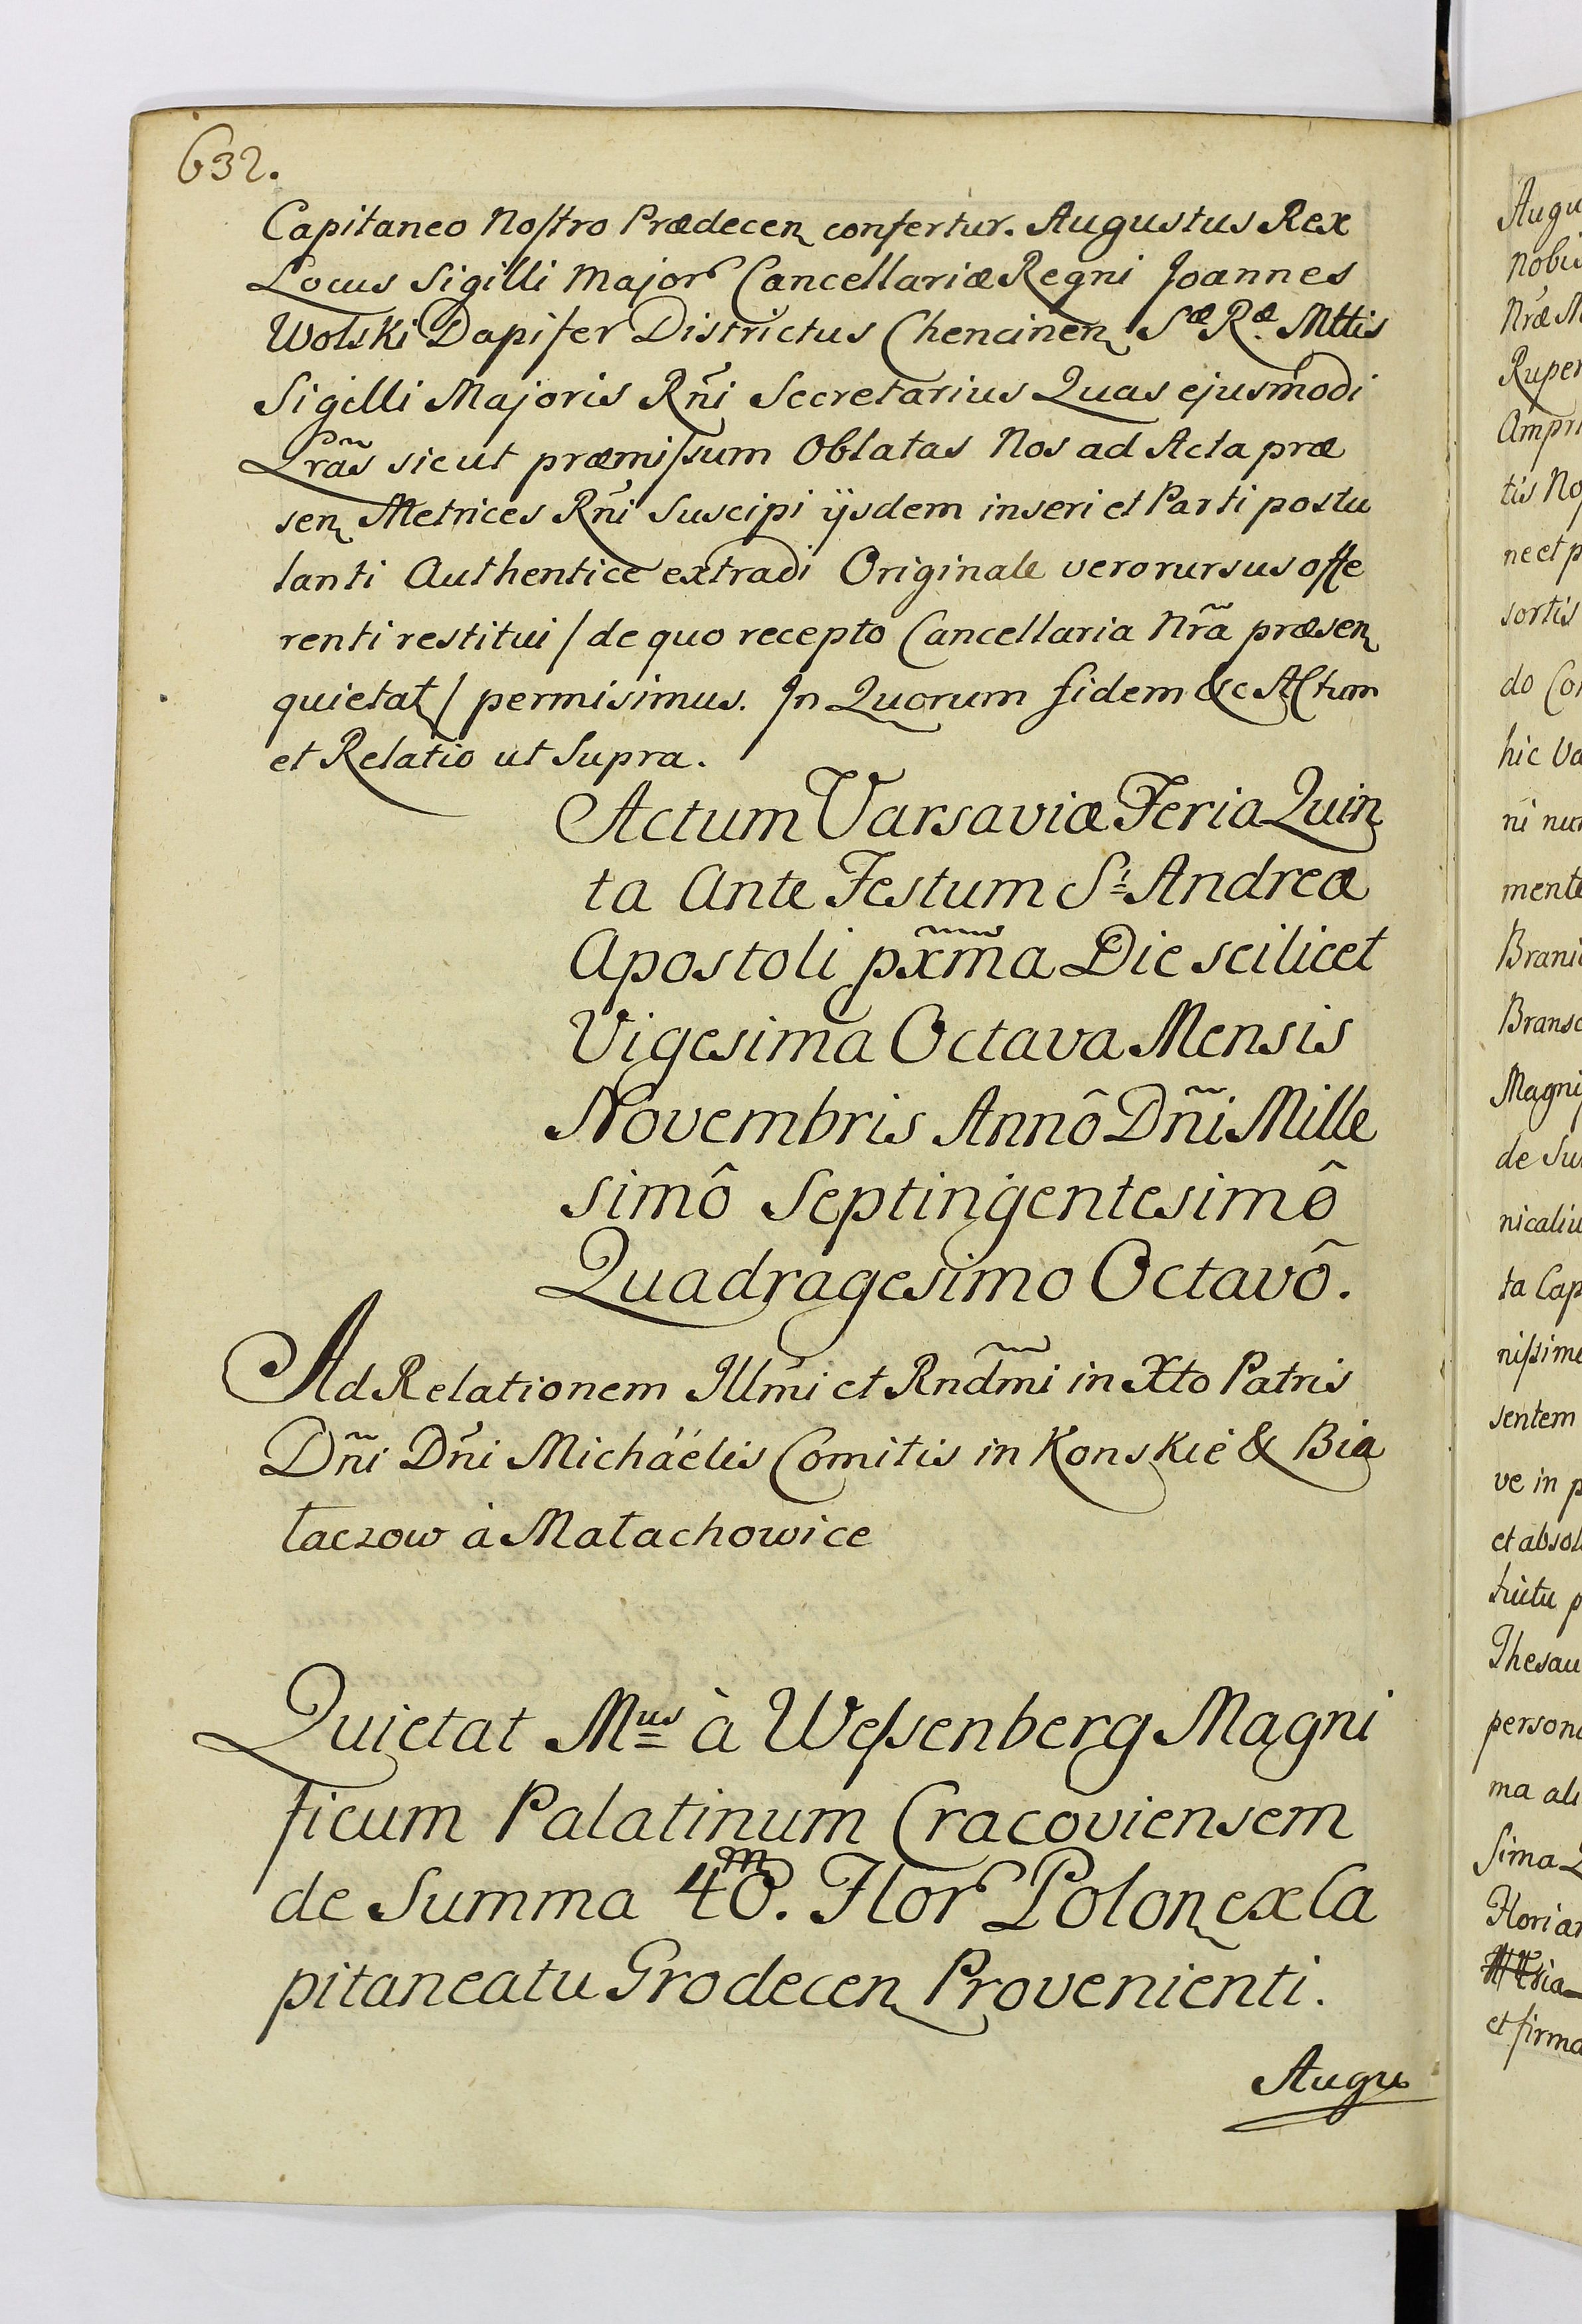 632.
Capitaneo Nostro Prædecen confertur. Augustus Rex
Locus Sigilli Major Cancellariæ Regni Joannes
Wolski Dapifer Districtus Chencinen Sæ Ræ. Mttis
Sigilli Majoris Rñi Secretarius Quas ejusmodi
Lrãs sicut præmissum Oblatas Nos ad Acta præ
sen Metrices Rñi Suscipi ijsdem inseri et Parti postu
lanti Authentice extradi Originale vero rursus offe
renti restitui / de quo recepto Cancellaria Nrã præsen
quietat / permisimus. In Quorum fidem &c Actum
et Relatio ut Supra.
Actum Varsaviæ Feria Quin
ta Ante Festum Sti Andreæ
Apostoli pxm̃a Die scilicet
Vigesima Octava Mensis
Novembris Annô Dñi Mille
simô Septingentesimô
Quadragesimo Octavô.
Ad Relationem Illm̃i et Rndm̃i in Xto Patris
Dñi Dñi Micháélis Comitis in Konskie & Bia
łaczow à Małachowice
Quietat Mus à Wessenberg Magni
ficum Palatinum Cracoviensem
de Summa 40m. Flor Polon ex Ca
pitaneatu Grodecen Provenienti.
Augu
Augu
Nobis
Nræ M
Ruper
Ampri
tis No
ne et p
sortis
do Con
hic Va
ni nun
mente
Branic
Bransc
Magni
de Su
nicaliu
ta Cap
nissime
sentem
ve in p
et absol
Thesau
persona
ma ali
sima
Florian
et firma